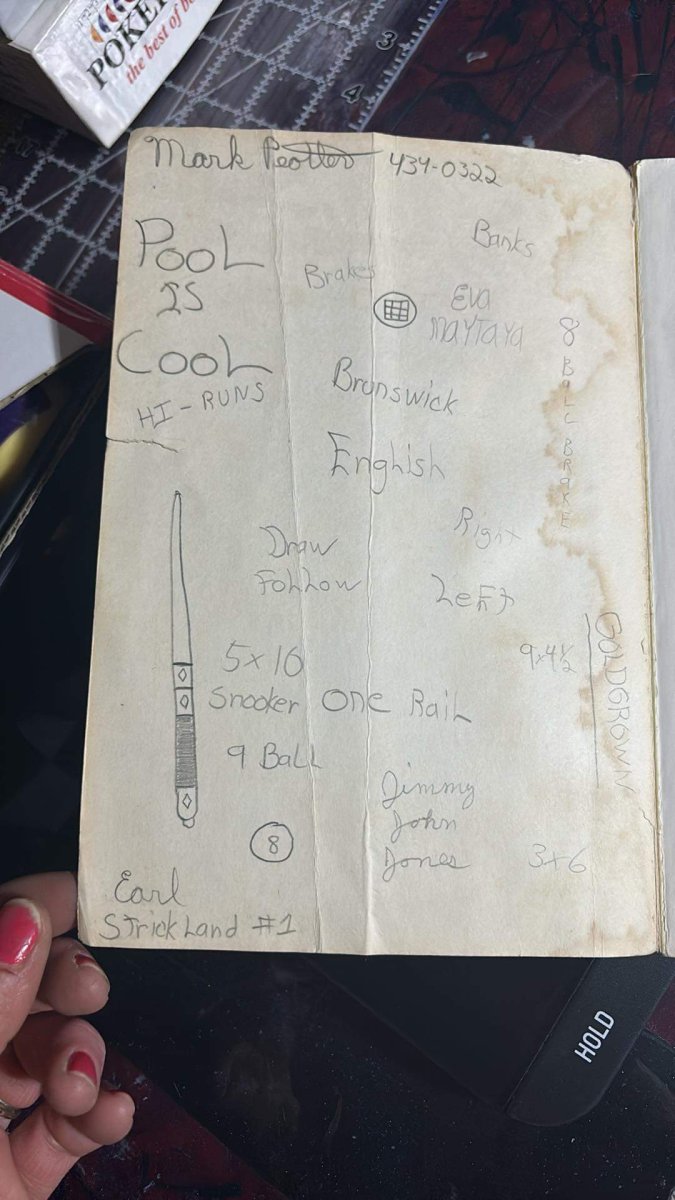 POKER
the best of
3
4
Mark Peotter 434-0322
Banks
POOL
IS
COOL
Brakes
EVA
MAYTAYA
HI-RUNS
Brunswick
8 BALL BRAKE
English
Right
Draw
Follow
Left
5x10
9x4½
GOLDCROWN
Snooker One Rail
9 Ball
Jimmy
John
Jones
3x6
8
Earl
Strickland #1
HOLD